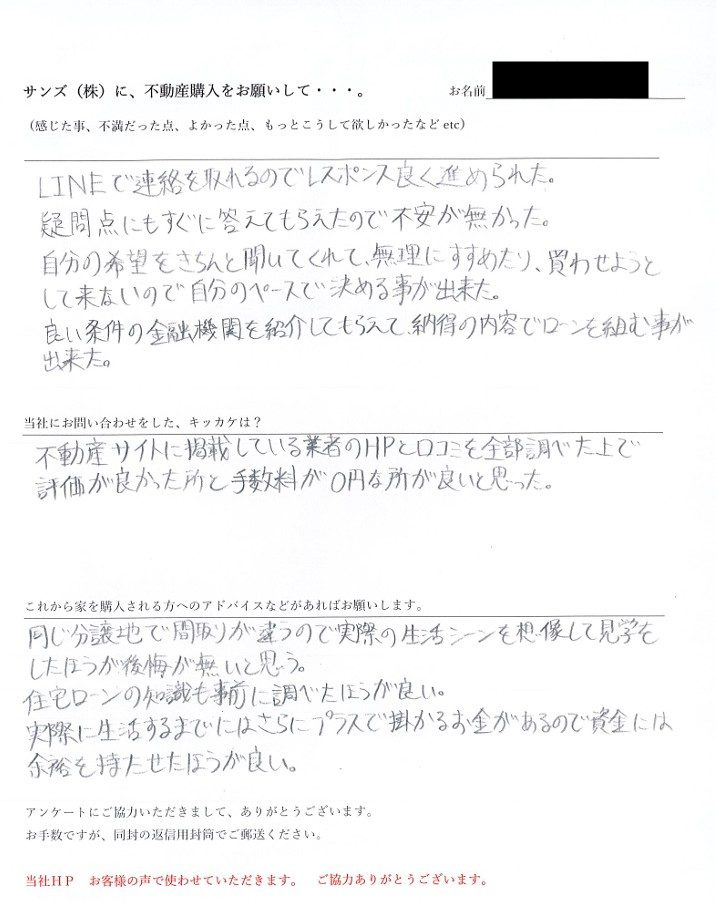 サンズ（株）に、不動産購入をお願いして・・・。 お名前
（感じた事、不満だった点、よかった点、もっとこうして欲しかったなど etc）
LINEで連絡を取れるのでレスポンス良く進められた。
疑問点にもすぐに答えてもらえたので不安が無かった。
自分の希望をきちんと聞いてくれて、無理にすすめたり、買わせようと
して来ないので自分のペースで決める事が出来た。
良い条件の金融機関を紹介してもらえて、納得の内容でローンを組む事が
出来た。
当社にお問い合わせをした、キッカケは？
不動産サイトに掲載している業者のHPと口コミを全部調べた上で
評価が良かった所と手数料が0円な所が良いと思った。
これから家を購入される方へのアドバイスなどがあればお願いします。
同じ分譲地で間取りが違うので実際の生活シーンを想像して見学を
したほうが後悔が無いと思う。
住宅ローンの知識も事前に調べたほうが良い。
実際に生活するまでにはさらにプラスで掛かるお金があるので資金には
余裕を持たせたほうが良い。
アンケートにご協力いただきまして、ありがとうございます。
お手数ですが、同封の返信用封筒でご郵送ください。
当社HP お客様の声で使わせていただきます。 ご協力ありがとうございます。